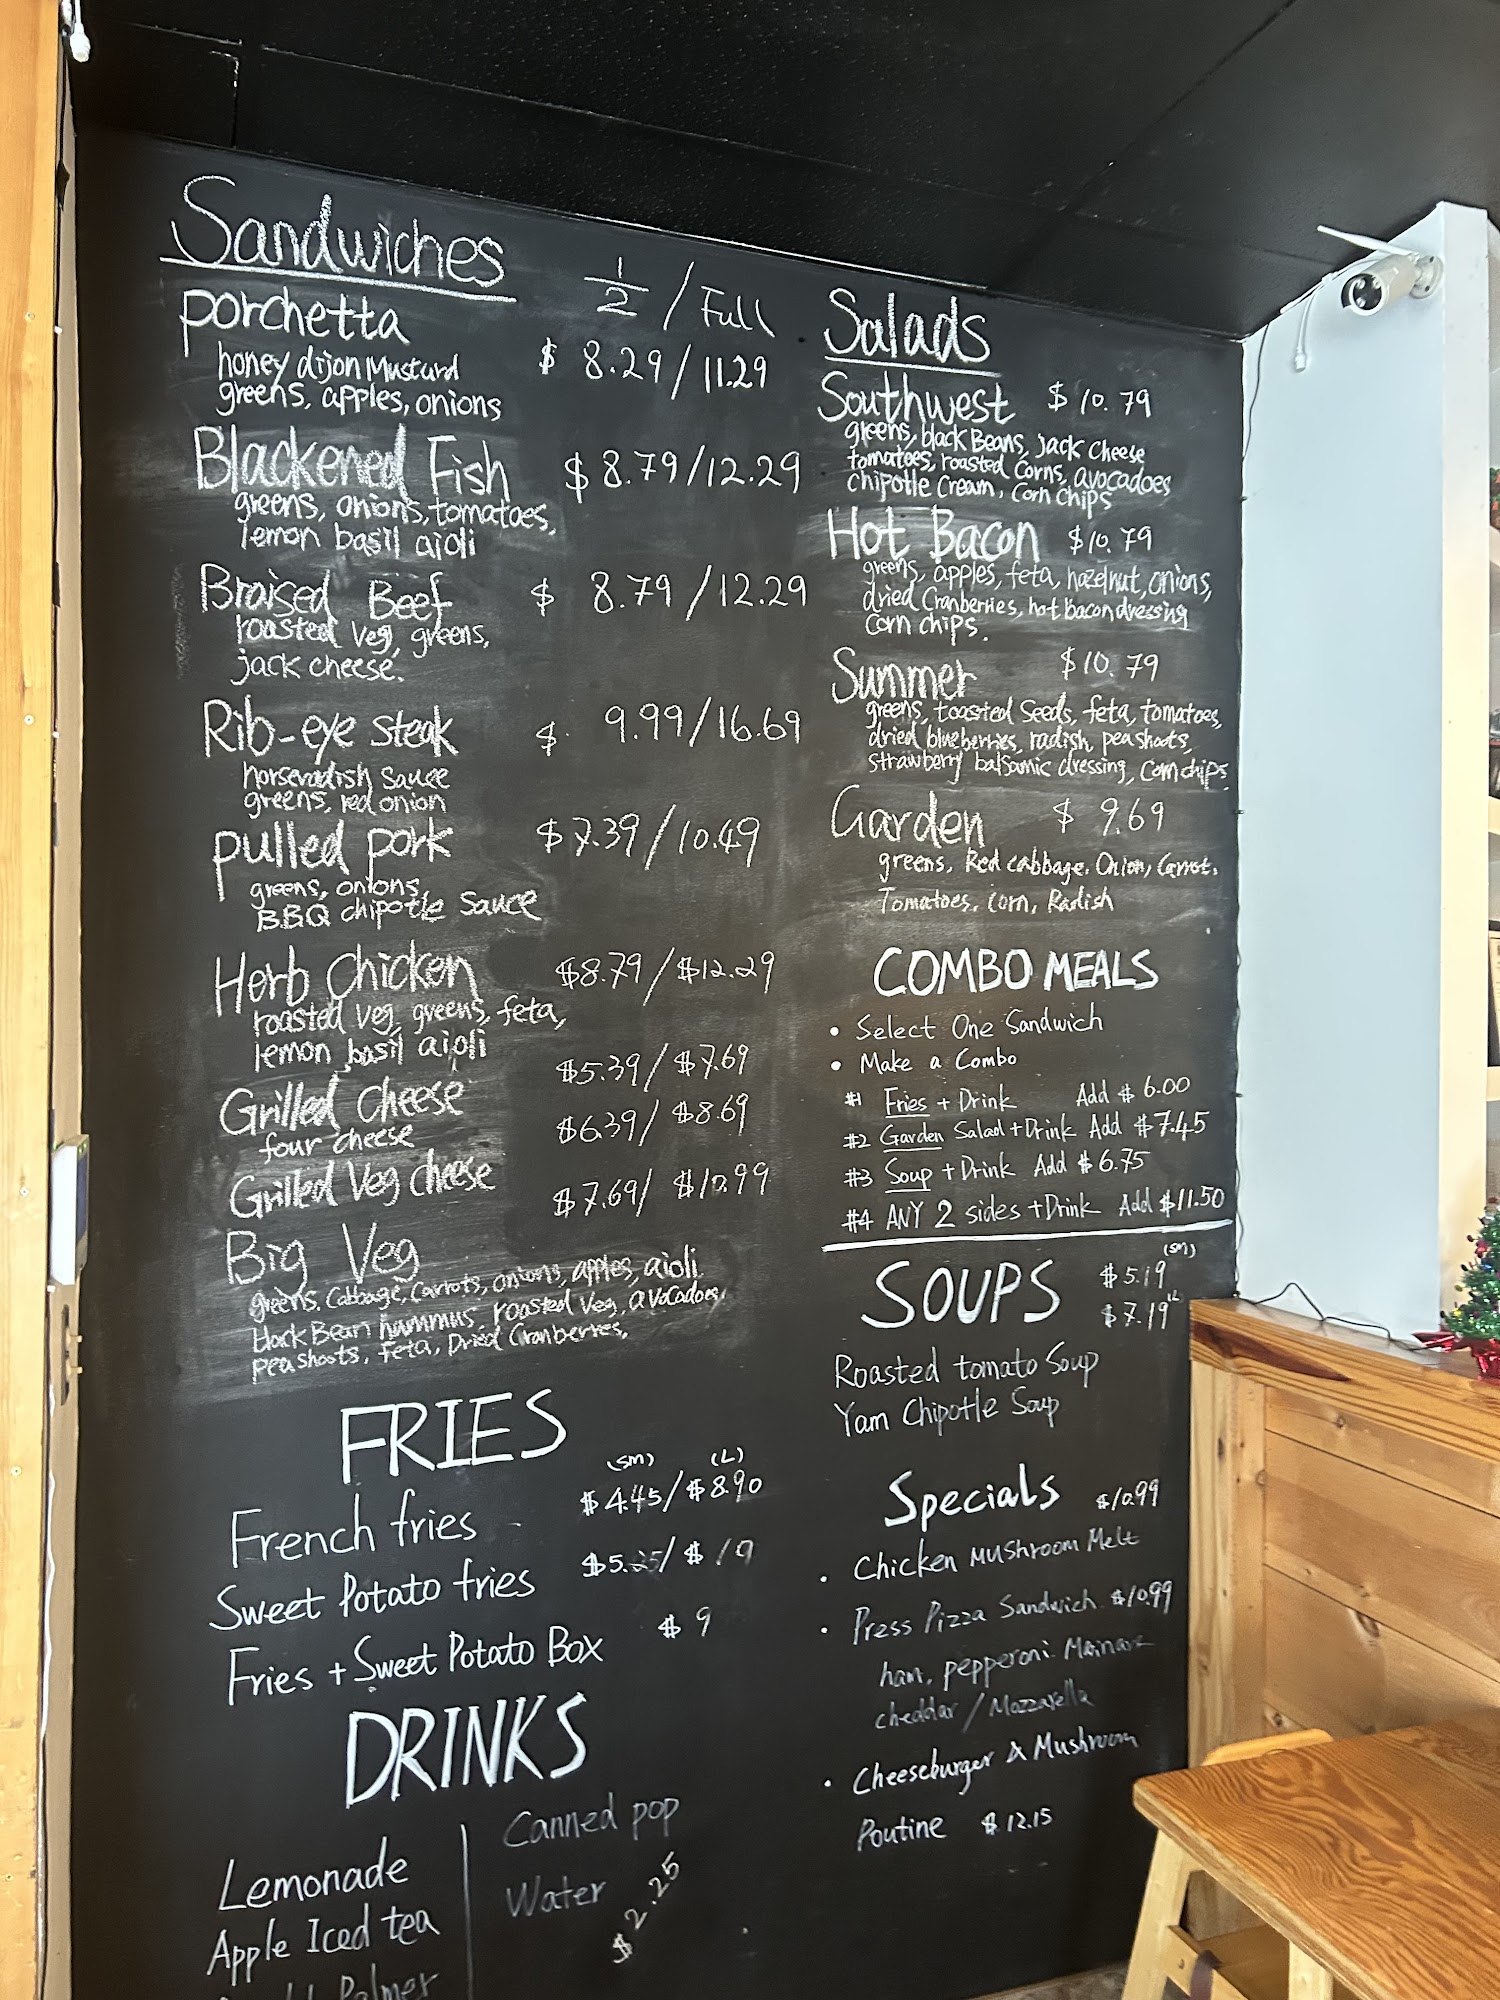 Sandwiches
1/2 / Full
porchetta
$ 8.29/11.29
honey dijon Mustard
greens, apples, onions
Blackened Fish
$ 8.79/12.29
greens, onions, tomatoes,
lemon basil aioli
Braised Beef
$ 8.79/12.29
roasted veg, greens,
jack cheese.
Rib-eye steak
$ 9.99/16.69
horseradish sauce
greens, red onion
pulled pork
$ 7.39/10.49
greens, onions,
BBQ chipotle Sauce
Herb Chicken
$8.79/$12.29
roasted veg, greens, feta,
lemon basil aioli
$5.39/$7.69
Grilled cheese
four cheese
$6.39/$8.69
Grilled Veg cheese
$7.69/ $10.99
Big Veg
greens, Cabbage, Carrots, onions, apples, aioli
black Bean hummus, roasted veg, avocadoes,
pea shoots, feta, Dried Cranberries,
FRIES
(SM) (L)
French fries
$4.45/$8.90
Sweet Potato fries
$5.25/$
Fries + Sweet Potato Box
$ 9
DRINKS
Lemonade
Apple Iced tea
Palmer
Canned pop
Water
$2.25
Salads
Southwest $10.79
greens, black Beans, jack Cheese
tomatoes, roasted Corns, avocadoes
chipotle Cream, Corn Chips
Hot Bacon $10.79
greens, apples, feta, hazelnut, onions,
dried Cranberries, hot bacon dressing
corn chips.
Summer $10.79
greens, toasted Seeds, feta, tomatoes,
dried blueberries, radish, pea shoots,
strawberry balsamic dressing, Corn chips
Garden $ 9.69
greens, Red cabbage, Onion, Carrot,
Tomatoes, corn, Radish
COMBO MEALS
• Select One Sandwich
• Make a Combo
#1 Fries + Drink Add $6.00
#2 Garden Salad + Drink Add $7.45
#3 Soup + Drink Add $6.75
#4 ANY 2 sides + Drink Add $11.50
SOUPS
$5.19 (SM)
$7.19 L
Roasted tomato Soup
Yam Chipotle Soup
Specials $10.99
• Chicken Mushroom Melt
• Press Pizza Sandwich $10.99
ham, pepperoni
cheddar / Mozzarella
• Cheeseburger & Mushroom
Poutine $12.15